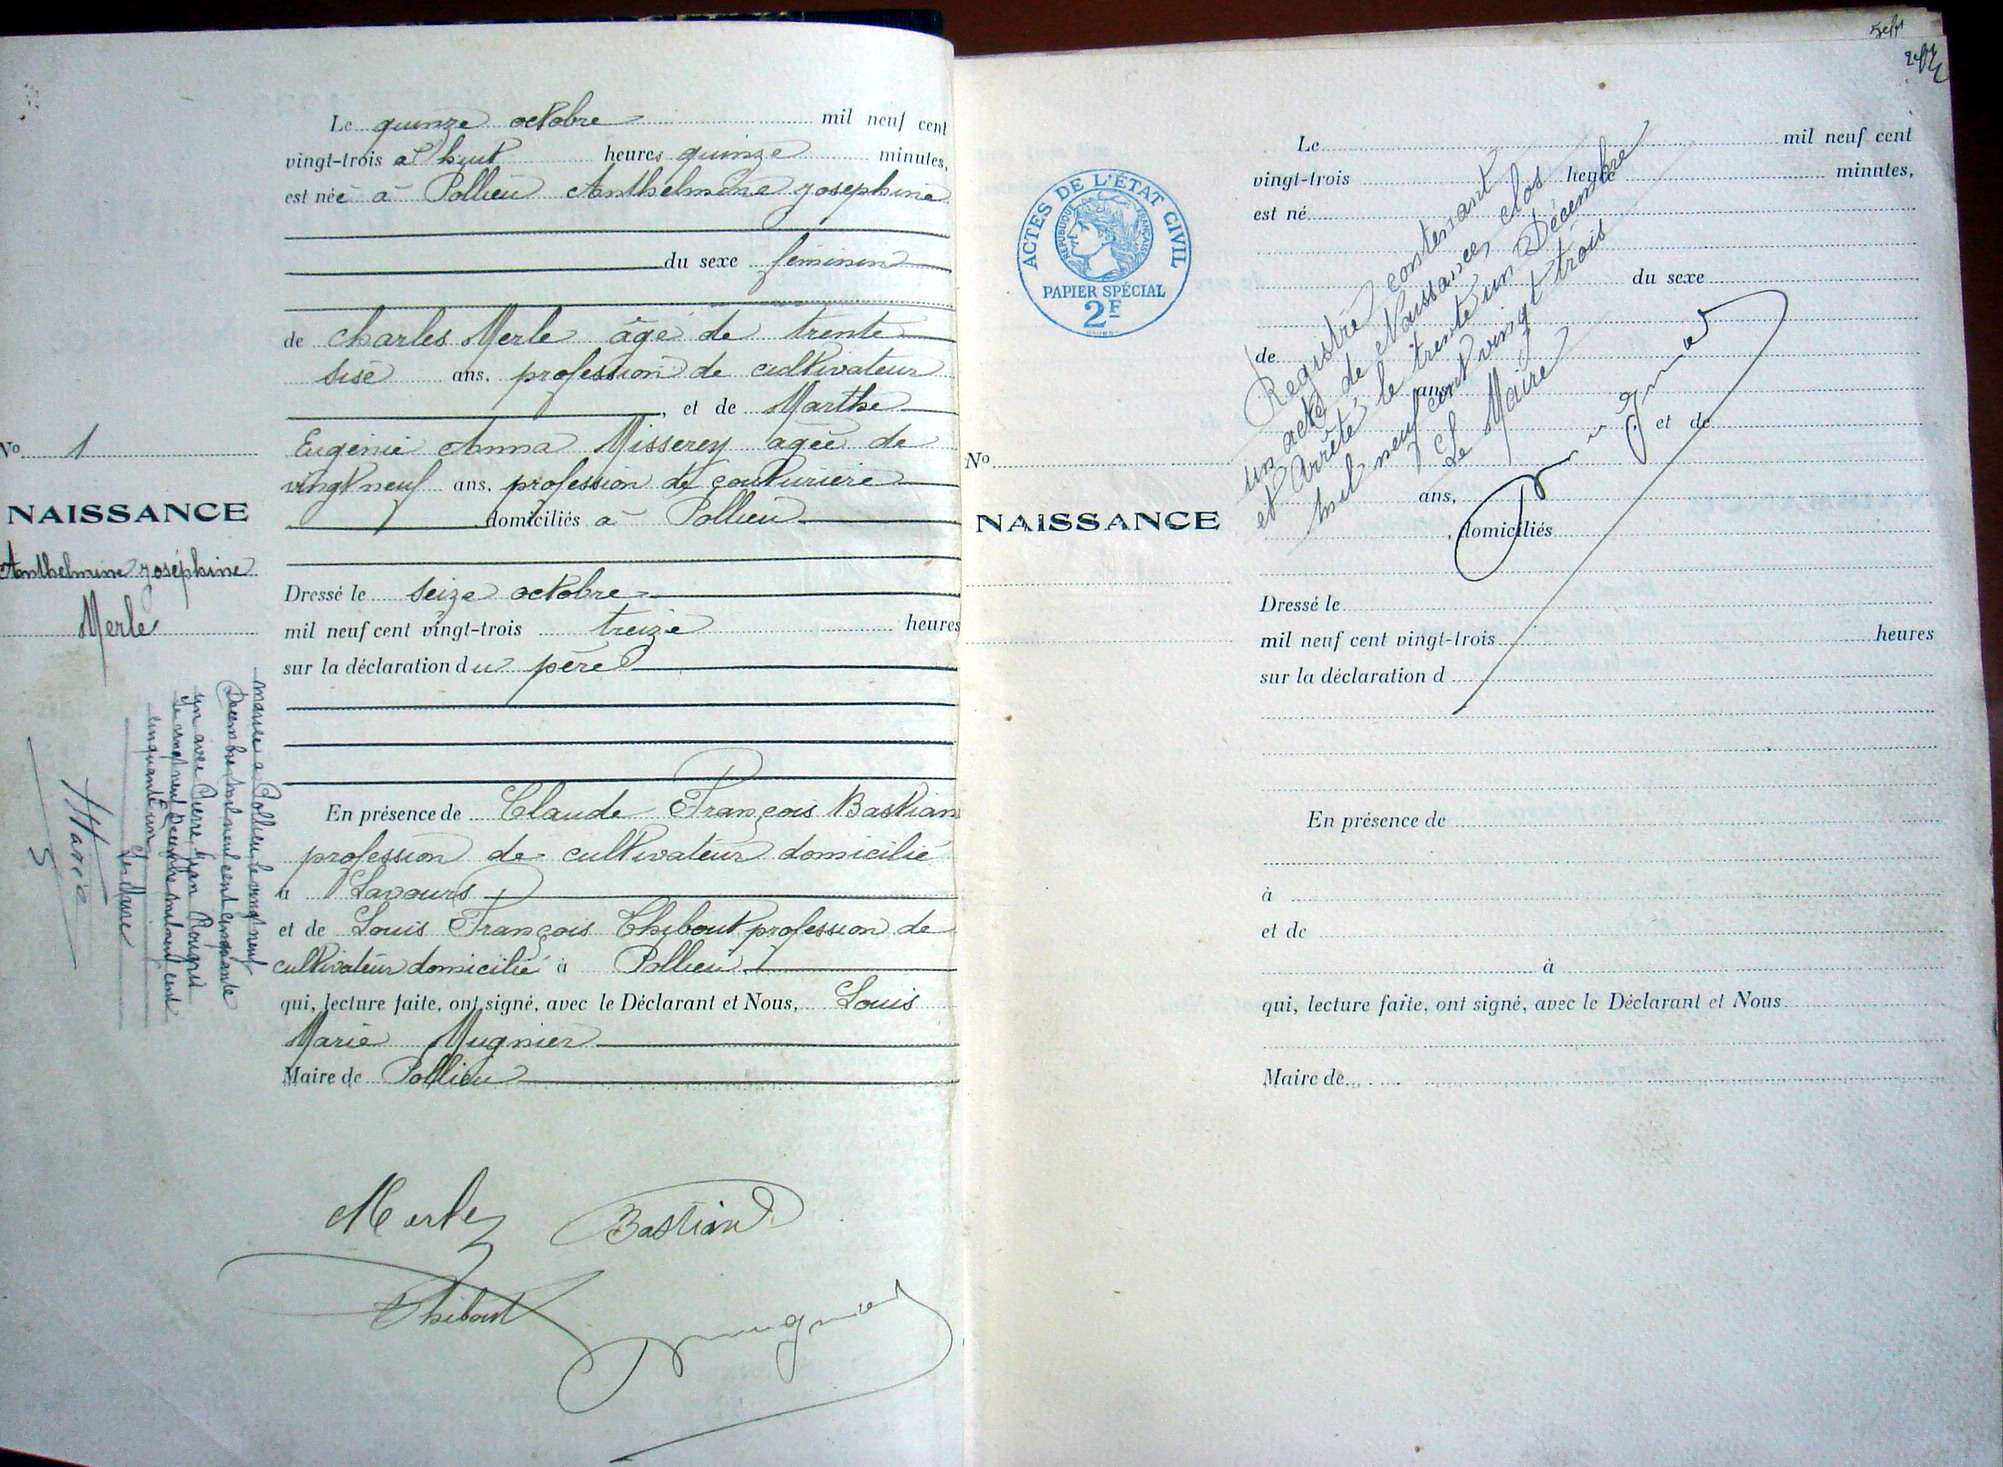 Le quinze octobre mil neuf cent
vingt-trois à huit heures quinze minutes,
est née à Pollieu Anthelmine Joséphine
du sexe féminin
de Charles Merle âgé de trente
sise ans, profession de cultivateur
, et de Marthe
Eugénie Anna Misserey agée de
vingt neuf ans, profession de couturière
domiciliés à Pollieu
Dressé le seize octobre
mil neuf cent vingt-trois treize heures
sur la déclaration du père
En présence de Claude François Bastian
profession de cultivateur domicilié
à Lavours
et de Louis François Thibout profession de
cultivateur domicilié à Pollieu
qui, lecture faite, ont signé, avec le Déclarant et Nous, Louis
Marie Mugnier
Maire de Pollieu
Merle Bastian
Thibout Mugnier
No 1
NAISSANCE
Anthelmine Joséphine
Merle
Mariée à Pollieu le vingt neuf
Décembre mil neuf cent cinquante
un avec Pierre Jean
le vingt neuf Décembre mil neuf cent
cinquante un
Le Maire
ACTES DE L'ÉTAT CIVIL
RÉPUBLIQUE FRANÇAISE
PAPIER SPÉCIAL
2F
No
NAISSANCE
Le mil neuf cent
vingt-trois heure minutes,
est né
du sexe
de
ans,
et de
ans,
, domiciliés
Dressé le
mil neuf cent vingt-trois heures
sur la déclaration d
En présence de
à
et de
à
qui, lecture faite, ont signé, avec le Déclarant et Nous
Maire de
Registre contenant
un acte de Naissance, clos
et Arrêté le trente un Décembre
mil neuf cent vingt trois
Le Maire